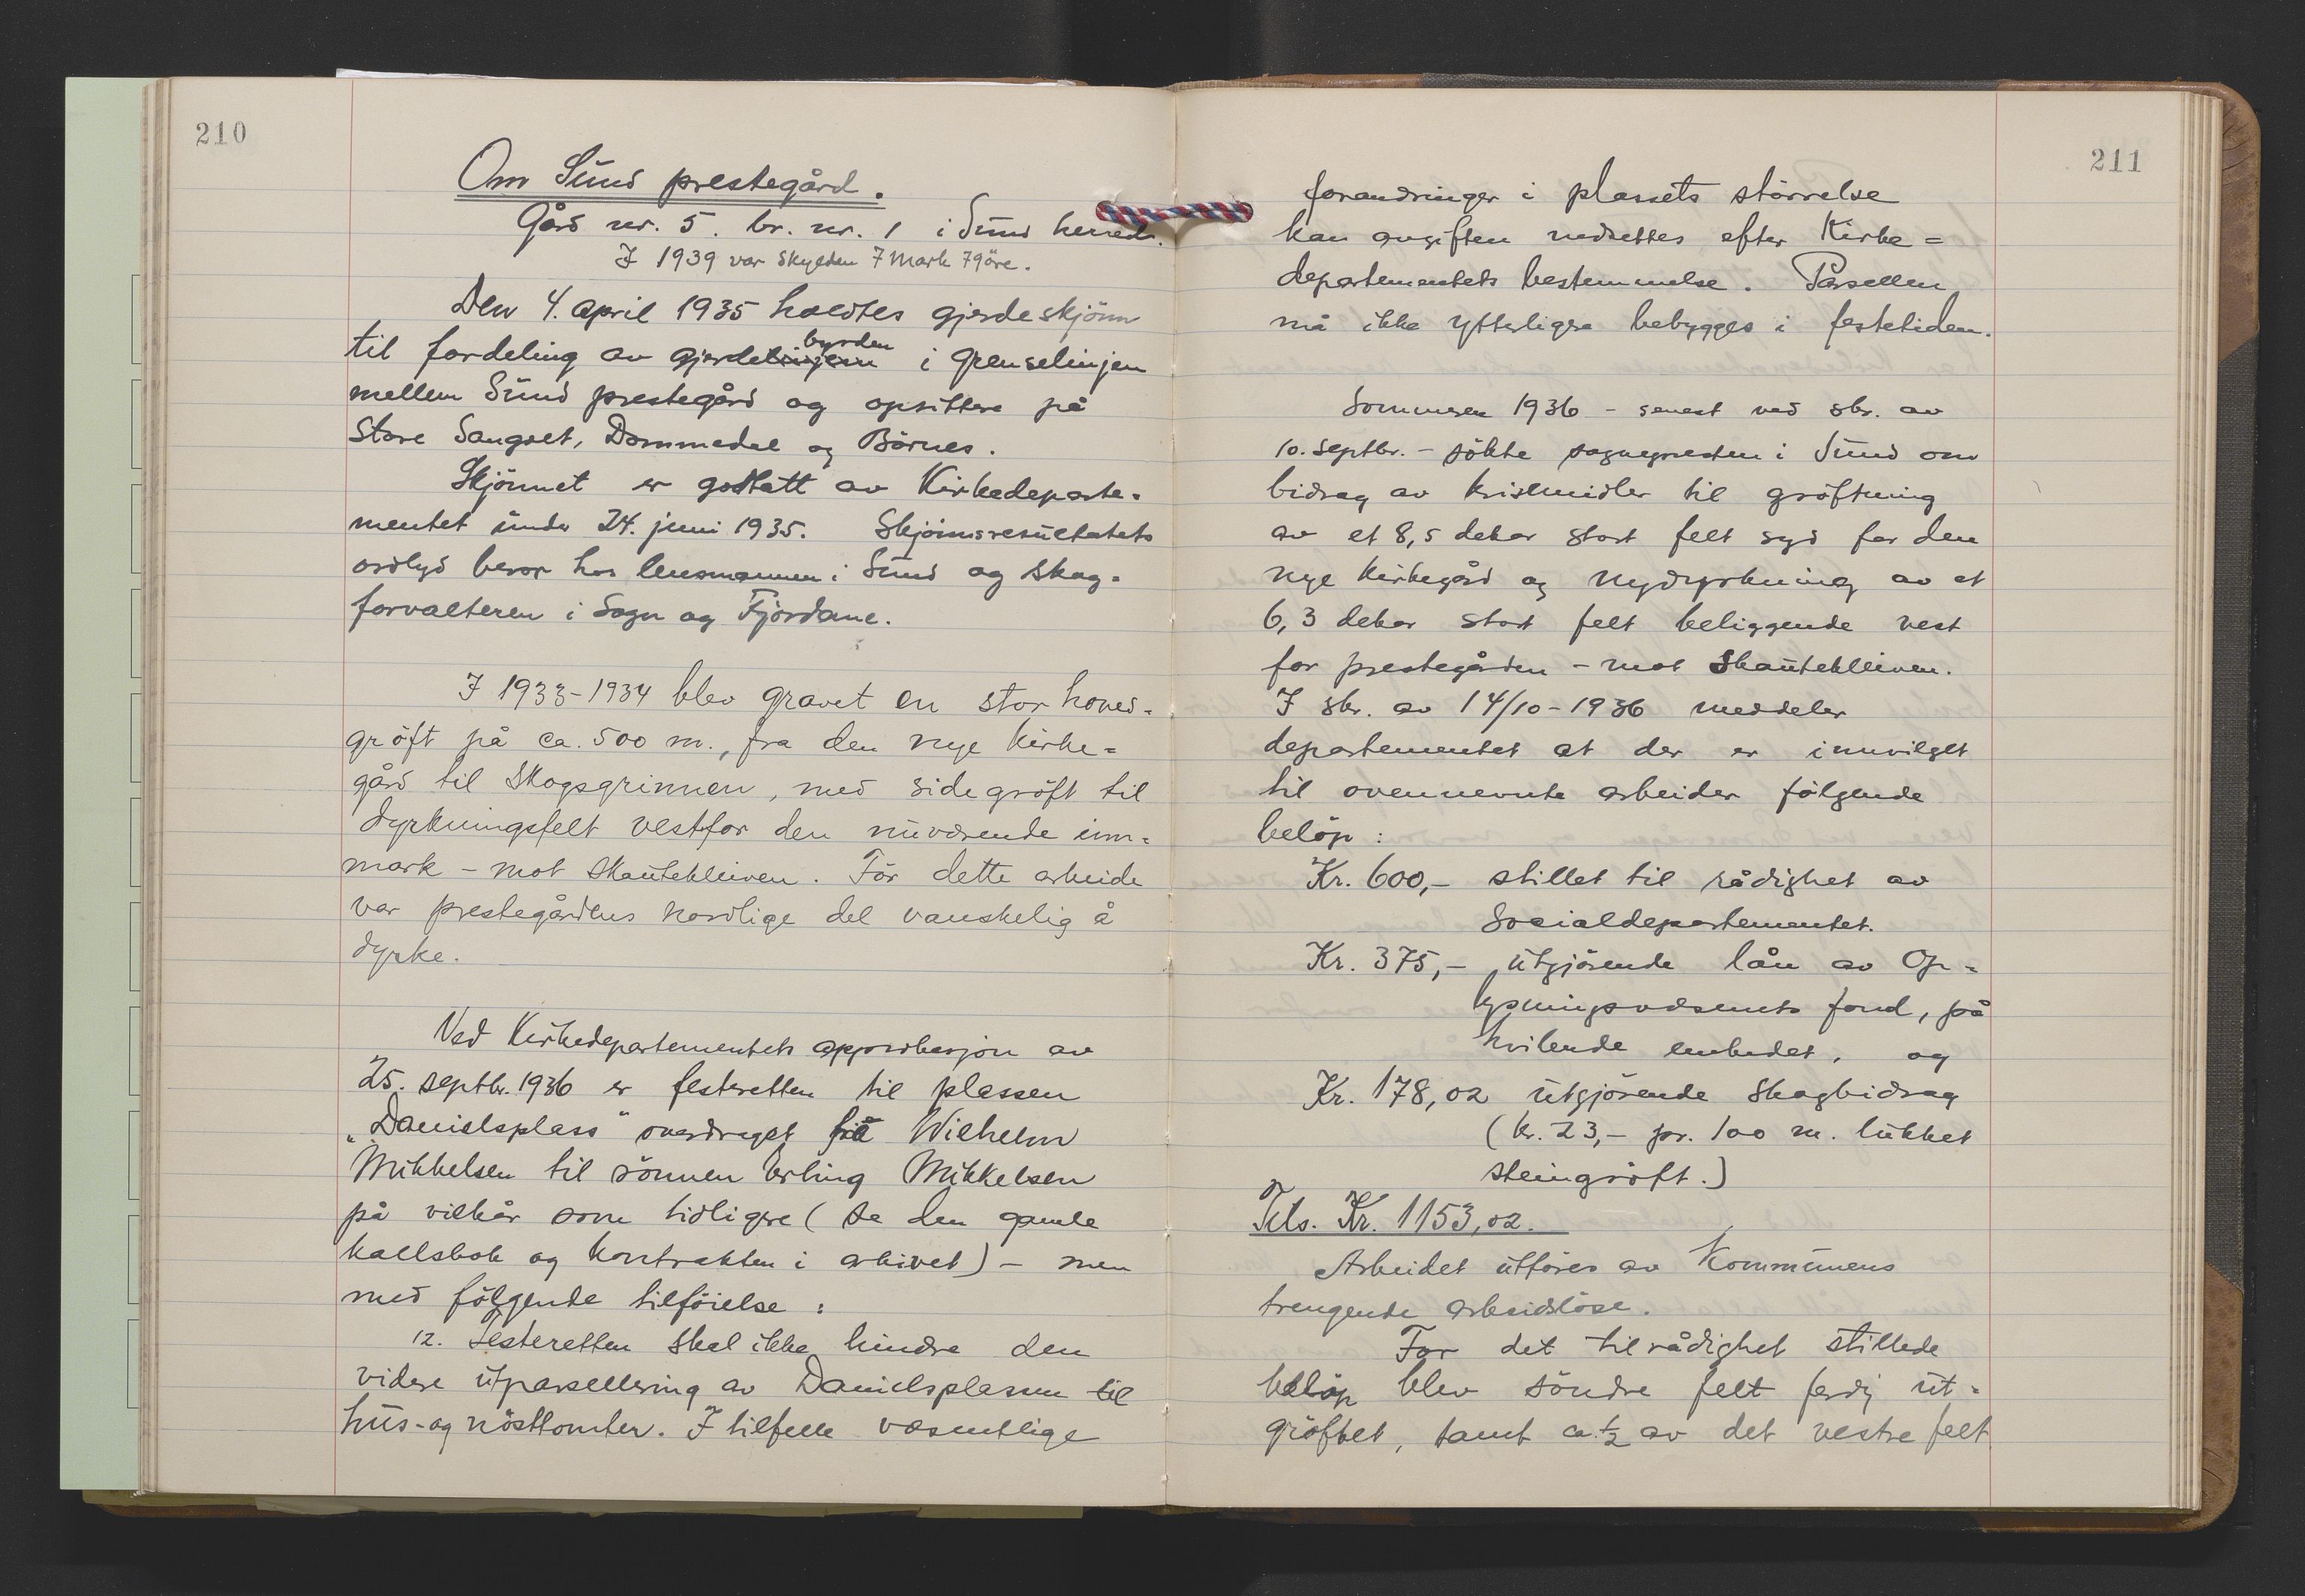 210
Om Sund prestegård.
Gård nr. 5. br. nr. 1 i Sund herred.
I 1939 var skylden 7 Mark 79 öre.
Den 4. april 1935 holdtes gjerdeskjönn
til fordeling av gjerdelinjen byrden i grenselinjen
mellem Sund prestegård og opsittere på
Store Sangolt, Dommedal og Börnes.
Skjönnet er godtatt av Kirkedeparte-
mentet under 24. juni 1935. Skjönnsresultatets
ordlyd beror hos lensmannen i Sund og skog-
forvalteren i Sogn og Fjordane.
I 1933-1934 blev gravet en stor hoved-
gröft på ca. 500 m., fra den nye kirke-
gård til Skogsgrinnen, med sidegröft til
dyrkningsfelt vestfor den nuværende inn-
mark - mot Skauteklleiven. För dette arbeide
var prestegårdens nordlige del vanskelig å
dyrke.
Ved Kirkedepartementets approbasjon av
25. septbr. 1936 er festeretten til plassen
"Danielsplass" overdraget frå Wilhelm
Mikkelsen til sönnen Erling Mikkelsen
på vilkår som tidligere (se den gamle
kallsbok og kontrakten i arkivet) - men
med fölgende tilföielse:
12. Festeretten skal ikke hindre den
videre utparsellering av Danielsplassen til
hus- og nösttomter. I tilfelle væsentlige
211
forandringer i plassets störrelse
kan avgiften nedsettes efter Kirke=
departementets bestemmelse. Parsellen
må ikke ytterligere bebygges i festetiden.
Sommeren 1936 - senest ved skr. av
10. septbr. - sökte sognepresten i Sund om
bidrag av krisemidler til gröftning
av et 8,5 dekar stort felt syd for den
nye kirkegård og nydyrkning av et
6,3 dekar stort felt beliggende vest
for prestegården - mot Skautekleiven.
I skr. av 14/10-1936 meddeler
departementet at der er innvilget
til ovennevnte arbeider fölgende
belöp:
Kr. 600,- stillet til rådighet av
Socialdepartementet.
Kr. 375,- utgjörende lån av Op-
lysningsvæsenets fond, på
hvilende embedet, og
Kr. 178,02 utgjörende Skogbidrag
(kr. 23,- pr. 100 m. lukket
steingröft.)
Tils. Kr. 1153,02.
Arbeidet utföres av Kommunens
trengende arbeidslöse.
For det til rådighet stillede
belöp blev söndre felt ferdig ut-
gröftet, samt ca. 1/2 av det vestre felt